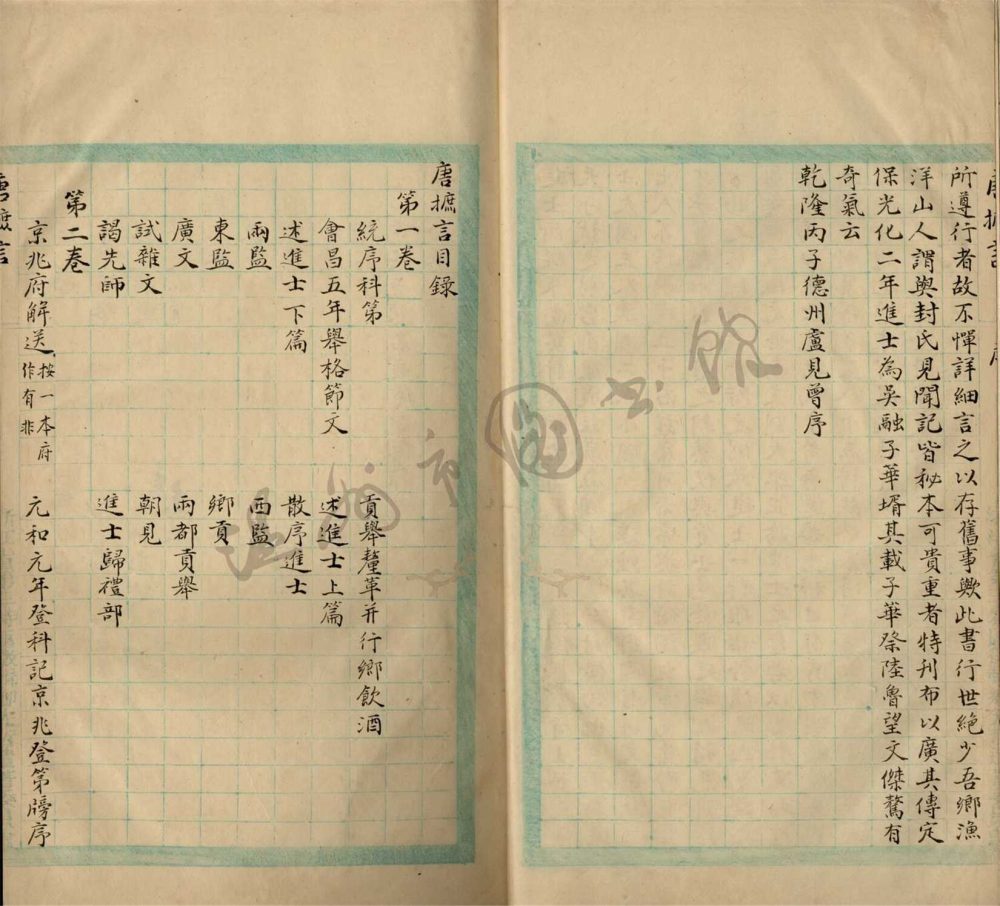 所遵行者故不憚詳細言之以存舊事歟此書行世絕少吾鄉漁
洋山人謂與封氏見聞記皆秘本可貴重者特刊布以廣其傳定
保光化二年進士為吳融子華壻其載子華祭陸魯望文傑驁有
奇氣云
乾隆丙子德州盧見曾序
唐摭言目錄
第一卷
統序科第
貢舉釐革并行鄉飲酒
會昌五年舉格節文
述進士上篇
述進士下篇
散序進士
兩監
西監
東監
鄉貢
廣文
兩都貢舉
試雜文
朝見
謁先師
進士歸禮部
第二卷
京兆府解送 按一本府作有非
元和元年登科記京兆登第牓序
唐摭言